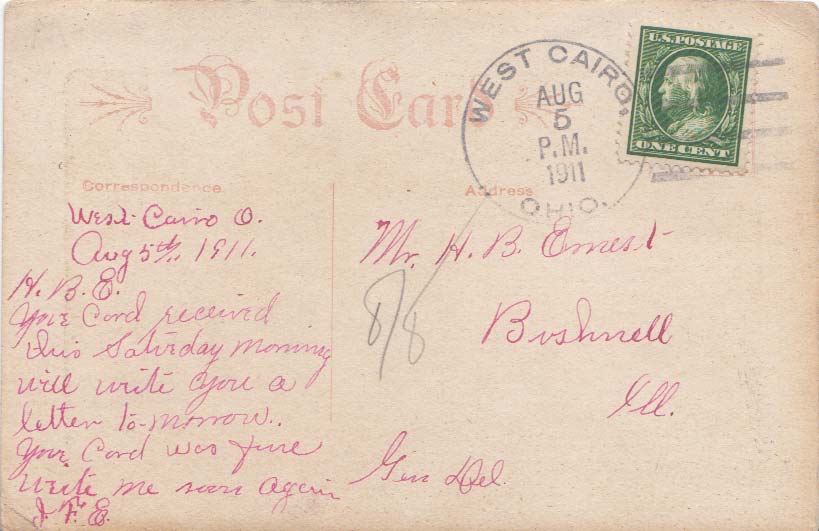 Post Card
WEST CAIRO,
AUG
5
P.M.
1911
OHIO.
U.S. POSTAGE
ONE CENT
Correspondence
Address
West Cairo O.
Aug 5th, 1911.
H. B. E.
Your Card received
this Saturday Morning
will write you a
letter to-morrow.
Your Card was fine
Write me soon again
J. F. E.
Mr. H. B. Ernest
Bushnell
Ill.
Gen Del.
8/8